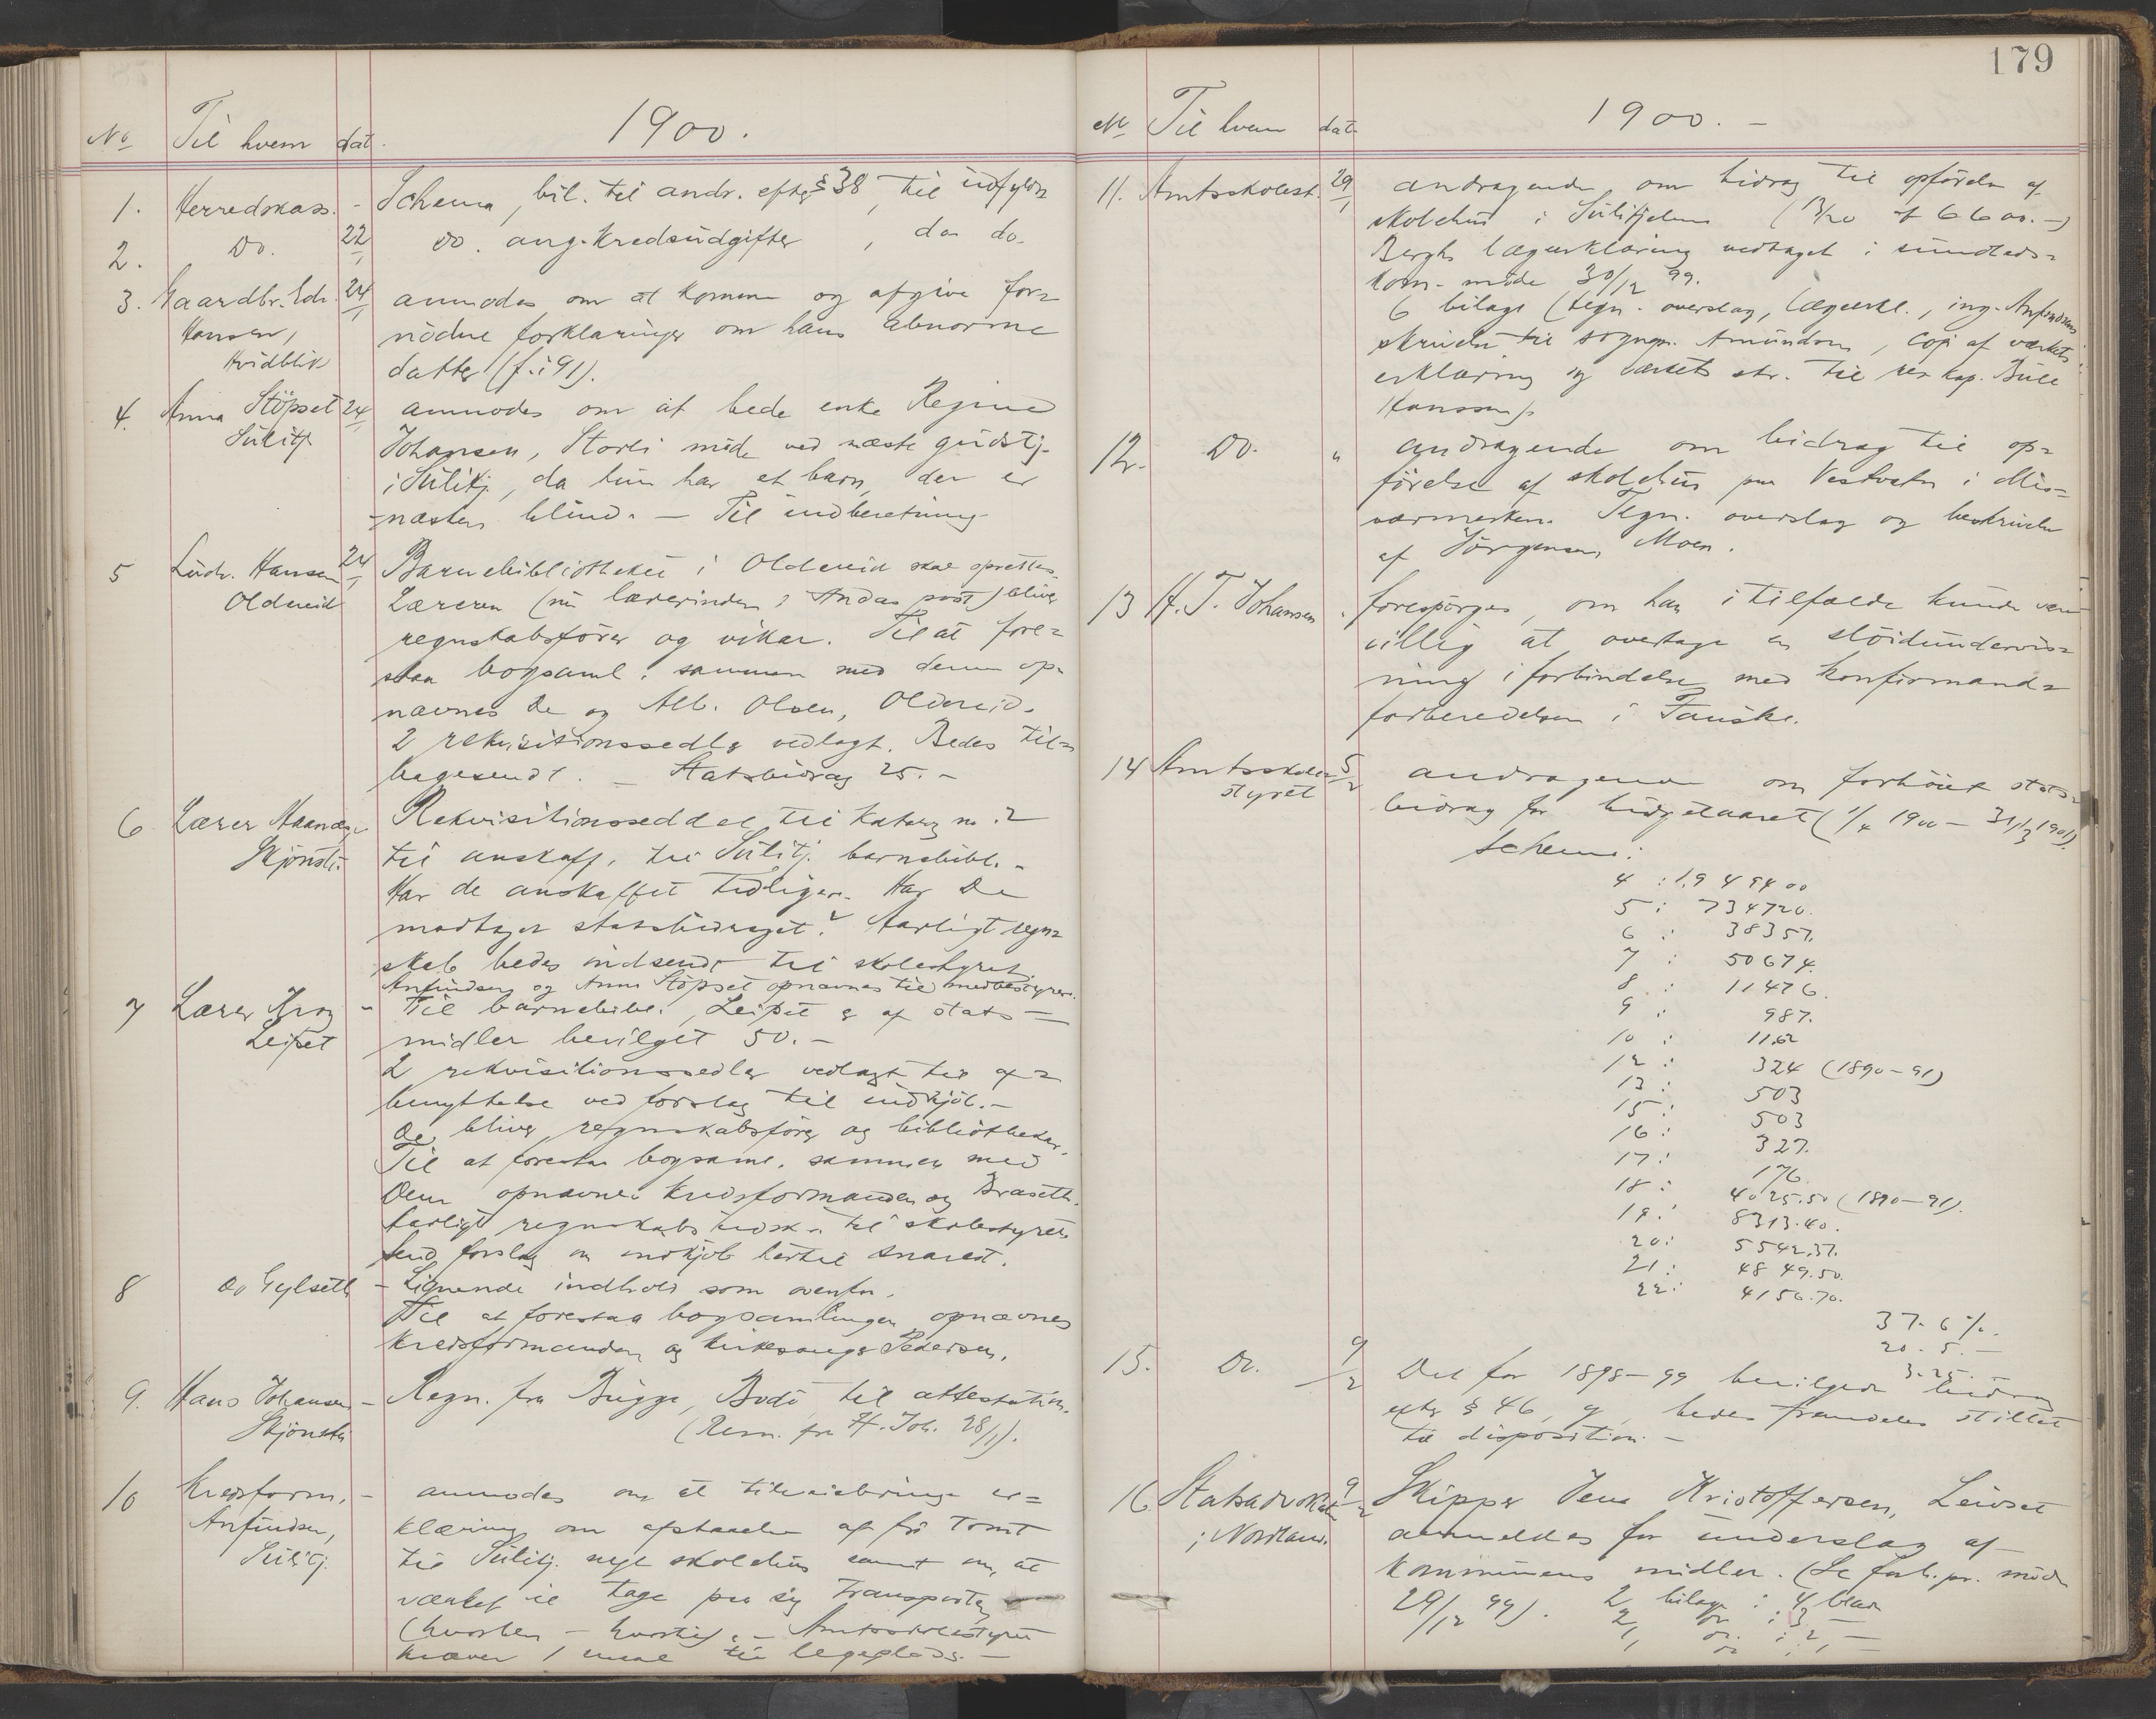 No Til hvem dat. 1900.
1. Herredskass. - Schema, bil. til andr. efter § 38, til udfyldn
2. Do. 22/1 do. ang. Kredsudgifter, do do.
3. Gaardbr. Edv. 24/1 anmodes om at komme og afgive for=
Hansen, nödne forklaringer om hans abnorme
Kvidblik datter (f. i 91).
4. Anna Stöpset 24/1 anmodes om at bede enke Regine
Sülitj. Johansen, Storli möde ved næste gudstj.
i Sülitj, da hun har et barn, der er
næsten blind. - Til indberetning
5 Ludv. Hansen 24/1 Barnebibliotheket i Oldereid skal oprettes.
Oldereid Læreren (nu lærerinden, Andås post) bliver
regnskabsförer og vikar. Til at fore=
staa bogsaml. sammen med denne op=
nævnes De og Alb. Olsen, Oldereid.
2 rekvisitionssedler vedlagt. Bedes til=
bagesendt. - Statsbidrag 25.-
6 Lærer Haanæs Rekvisitionsseddel til Katalog no. 2
Skjönstå. til anskaff. til Sülitj. barnebibl. -
Har de anskaffet tidligere. Har De
modtaget statsbidraget? Aarligt regn=
skab bedes indsendt til skolestyret.
Anfindsen og Anna Stöpset opnævnes til medbestyrere.
7 Lærer Krog - Til barnebibl., Leifset er af stats=
Leifset midler bevilget 50.-
2 rekvisitionssedler vedlagt til af=
benyttelse ved forslag til indkjöb.-
De bliver regnskabsförer og bibliothekar.
Til at forestaa bogsaml. sammen med
Dem opnævnes kredsformanden og Braseth.
Aarligt regnskabs tilsk. til skolestyret.
Send forslag om indkjöb hertil snarest.
8 do Gylseth - Lignende indhold som ovenfor.
Til at forestaa bogsamlingen opnævnes
kredsformanden og kirkesanger Pedersen.
9. Hans Johansen - Regn. fra Brügge, Bodö, til attestation.
Skjönstå (Rem. fra H. Joh. 28/1).
10 Kredsform. - anmodes om at tilveiebringe er=
Anfindsen, klæring om afstaaelse af fri tomt
Sülitj. til Sülitj. nye skolehus samt om, at
værket vil tage paa sig transporten
(hvorben - hvortil. - Amtsskolestyret
kræver 1 maal til legeplads. -
179
No Til hvem dat. 1900. -
11. Amtsskolest. 29/1 andragende om bidrag til opförelse af
skolehus i Sulitjelma (13/20 af 6600.-)
Berghs lægeerklæring vedtaget i sundheds=
kom. möde 30/12 99.
6 bilage (tegn. overslag, lægeerkl., ing. Anfindsens
skrivelse til sognepr. Amundsen, Copi af værkets
erklæring og værkets skr. til res. kap. Bull
Hanssen).
12. Do. " andragende om bidrag til op=
förelse af skolehus paa Vestvatn i Mis=
værmarken. Tegn. overslag og beskrivelse
af Jörgensen, Moen.
13 H. T. Johansen " forespörges, om han i tilfælde kunde være
villig at overtage en slöidundervis=
ning i forbindelse med konfirmand=
forberedelsen i Fauske.
14 Amtsskole= 5/2 andragende om forhöiet stats=
styret bidrag for budgetaaret (1/4 1900 - 31/3 1901).
Schema:
4 : 1,949400
5 : 734720.
6 : 38357.
7 : 50674.
8 : 11476.
9 : 987.
10 : 11.62
12 : 324 (1890-91)
13 : 503
15 : 503
16 : 327.
17 : 176.
18 : 4025.50 (1890-91).
19 : 8313.40.
20 : 5542.37.
21 : 4849.50.
22 : 4156.70.
37.6 %.
20. 5. -
3.25. -
15. Do. 9/2 Det for 1898-99 bevilgede bidrag
efter § 46, g, bedes fremdeles stillet
til disposition. -
16 Statsadvokaten 9/2 Skipper Jens Kristoffersen, Leivset
i Nordland. anmeldes for underslag af
kommunens midler. (Se forh. pr. möde
29/12 99). 2 bilage : 4 blade
2 do. : 3 -
1 do : 2 -